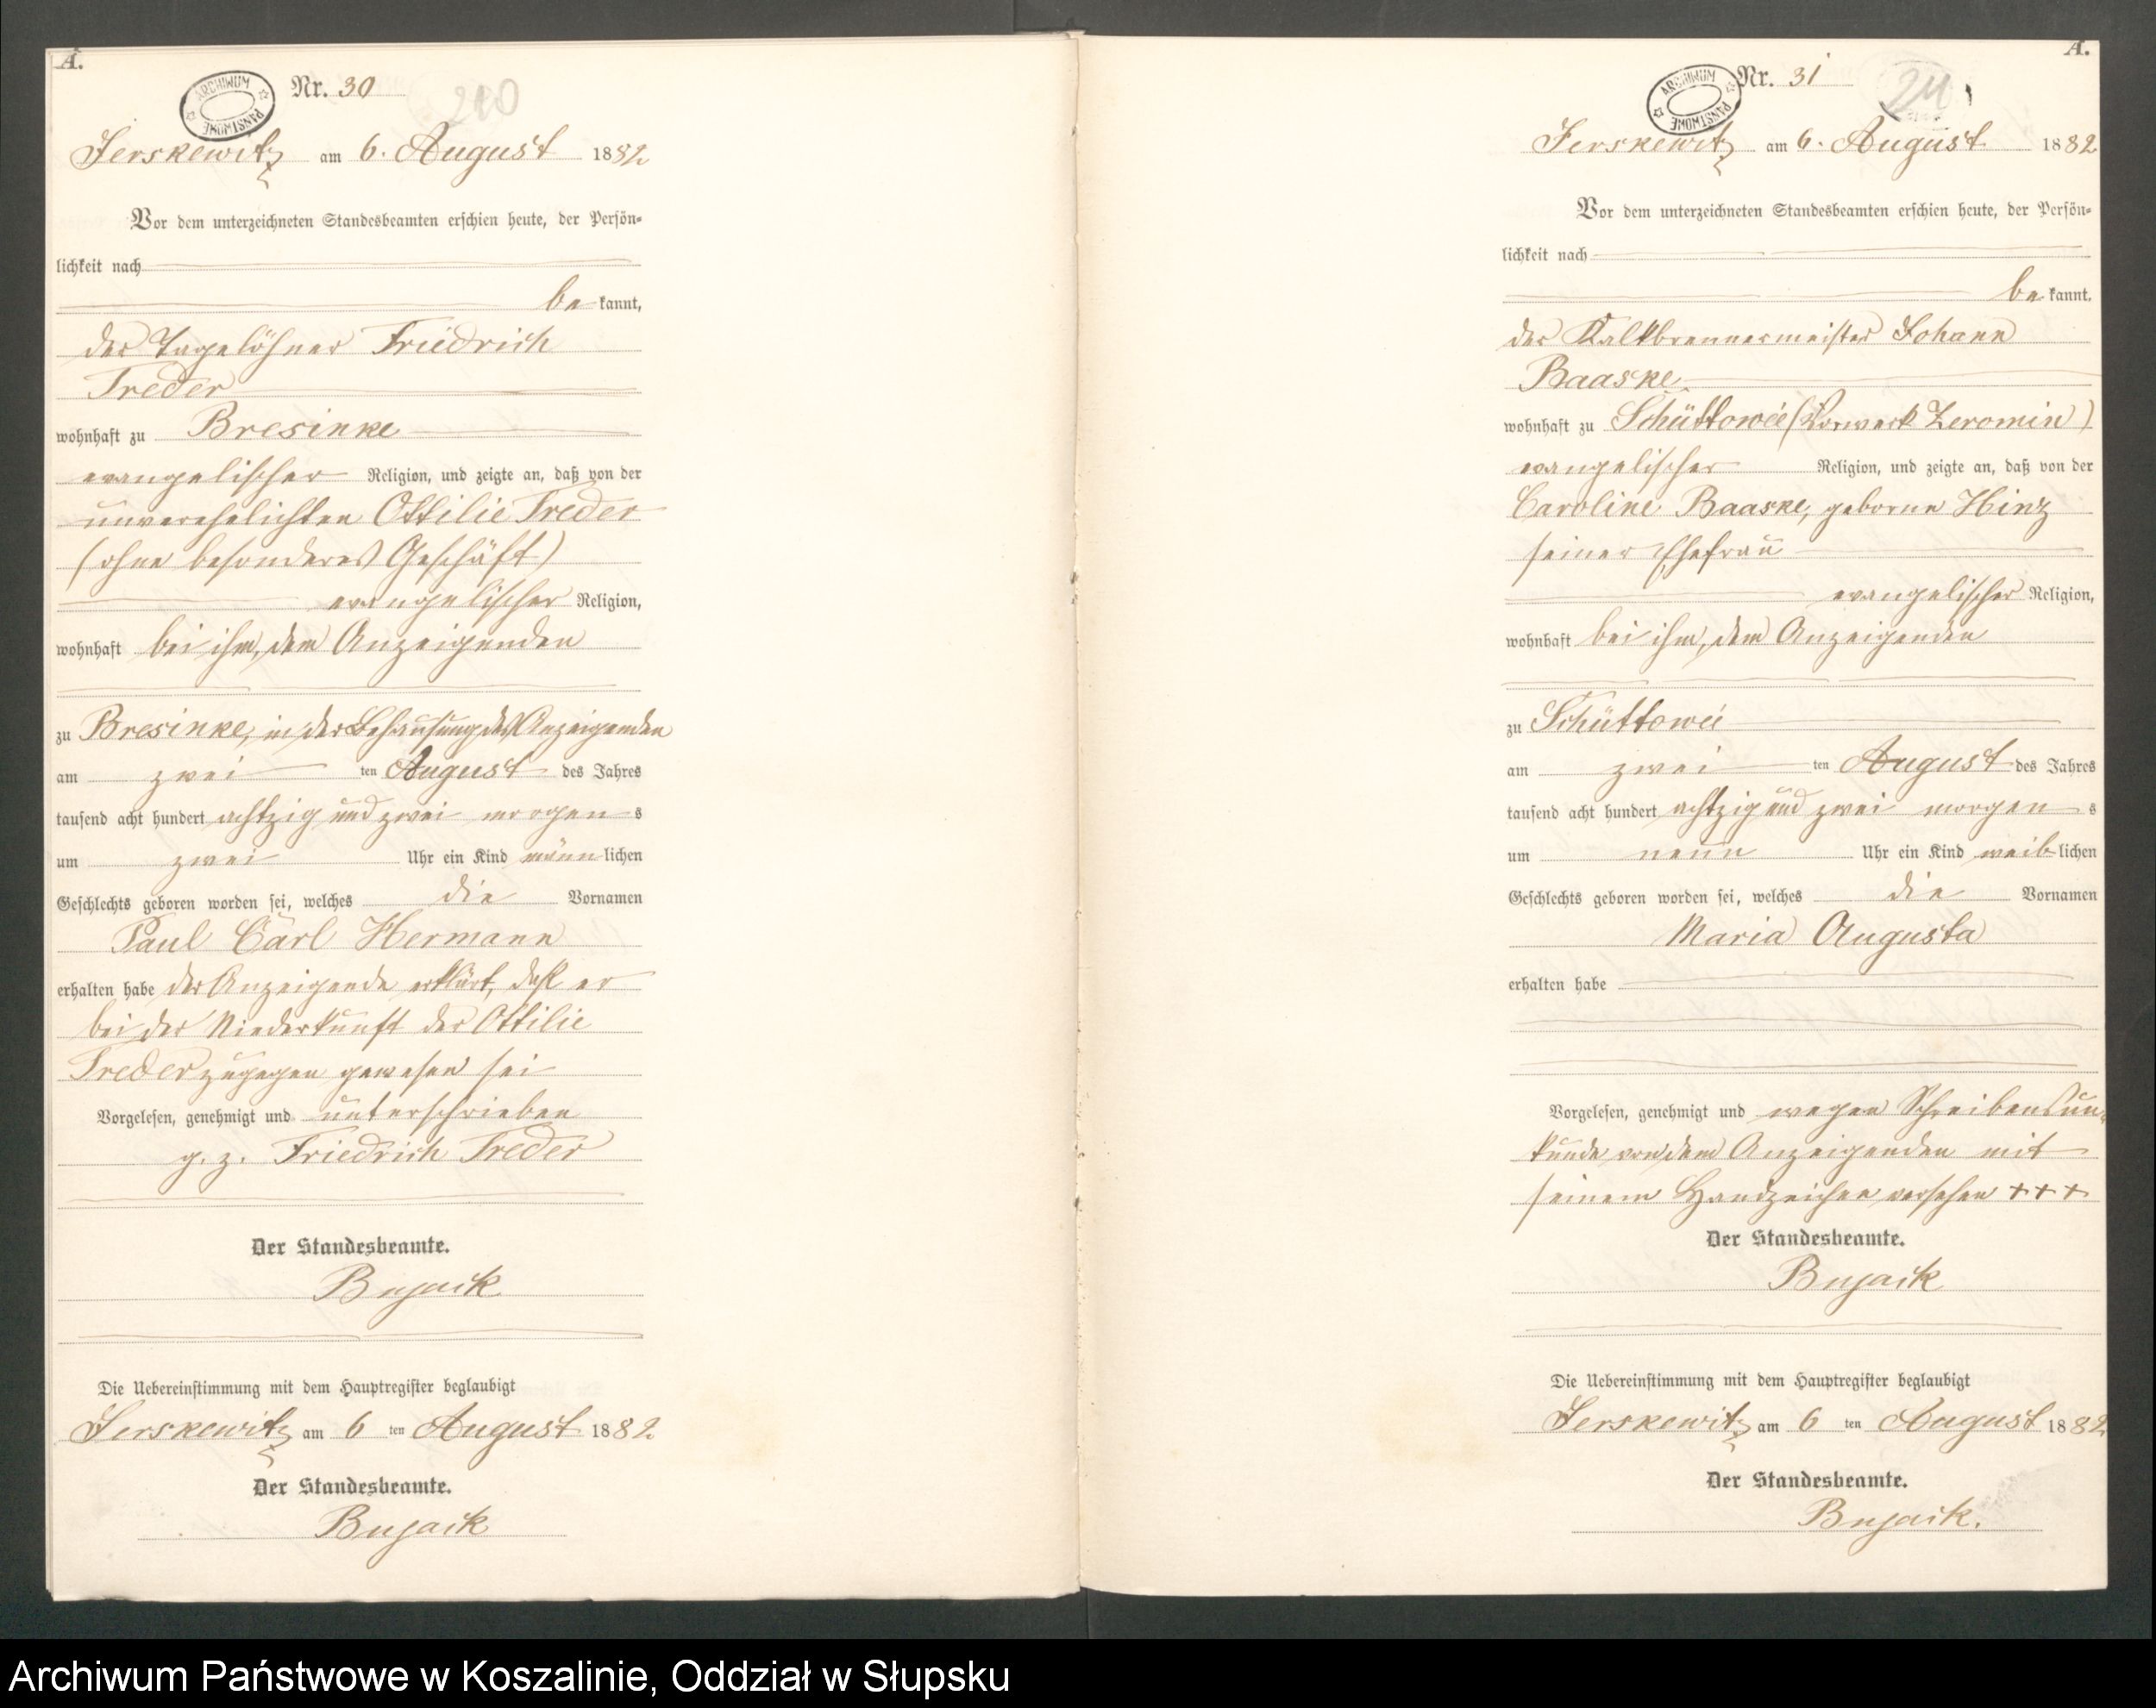 A.
ARCHIWUM PAŃSTWOWE
Nr. 30
210
Jerskewitz am 6. August 1882
Vor dem unterzeichneten Standesbeamten erschien heute, der Persön-
lichkeit nach
be kannt,
der Tagelöhner Friedrich
Treder
wohnhaft zu Bresinke
evangelischer Religion, und zeigte an, daß von der
unverehelichten Ottilie Treder
(ohne besonderes Geschäft)
evangelischer Religion,
wohnhaft bei ihm, dem Anzeigenden
zu Bresinke, in der Behausung des Anzeigenden
am zwei ten August des Jahres
tausend acht hundert achtzig und zwei morgen s
um zwei Uhr ein Kind männ lichen
Geschlechts geboren worden sei, welches die Vornamen
Paul Carl Hermann
erhalten habe der Anzeigende erklärt, daß er
bei der Niederkunft der Ottilie
Treder zugegen gewesen sei
Vorgelesen, genehmigt und unterschrieben
g. z. Friedrich Treder
Der Standesbeamte.
Bujack
Die Uebereinstimmung mit dem Hauptregister beglaubigt
Jerskewitz am 6 ten August 1882
Der Standesbeamte.
Bujack
A.
ARCHIWUM PAŃSTWOWE
Nr. 31
211
Jerskewitz am 6. August 1882
Vor dem unterzeichneten Standesbeamten erschien heute, der Persön-
lichkeit nach
be kannt,
der Kalkbrennermeister Johann
Baaske
wohnhaft zu Schüttowei (Vorwerk Zeromin)
evangelischer Religion, und zeigte an, daß von der
Caroline Baaske, geborne Hinz
seiner Ehefrau
evangelischer Religion,
wohnhaft bei ihm, dem Anzeigenden
zu Schüttowei
am zwei ten August des Jahres
tausend acht hundert achtzig und zwei morgen s
um neun Uhr ein Kind weib lichen
Geschlechts geboren worden sei, welches die Vornamen
Maria Augusta
erhalten habe
Vorgelesen, genehmigt und wegen Schreibensun-
kunde von dem Anzeigenden mit
seinem Handzeichen versehen +++
Der Standesbeamte.
Bujack
Die Uebereinstimmung mit dem Hauptregister beglaubigt
Jerskewitz am 6 ten August 1882
Der Standesbeamte.
Bujack.
Archiwum Państwowe w Koszalinie, Oddział w Słupsku